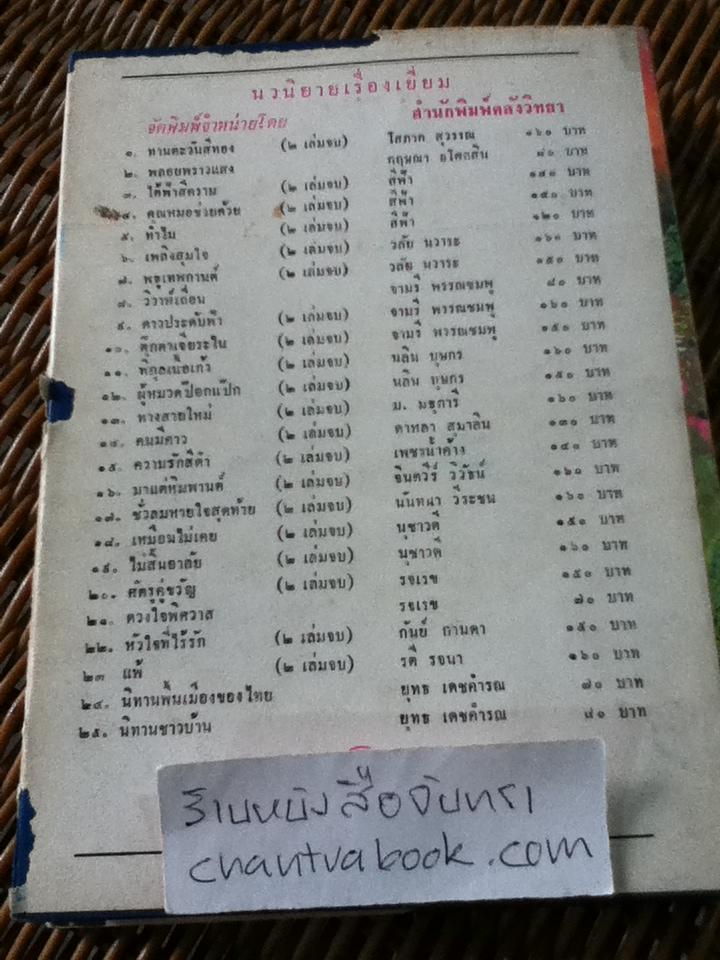 นวนิยายเรื่องเยี่ยม
จัดพิมพ์จำหน่ายโดย สำนักพิมพ์คลังวิทยา
๑. ทานตะวันสีทอง (๒ เล่มจบ) โสภาค สุวรรณ ๑๖๐ บาท
๒. พลอยพราวแสง กฤษณา อโศกสิน ๘๐ บาท
๓. ใต้ฟ้าสีคราม (๒ เล่มจบ) สีฟ้า ๑๕๐ บาท
๔. คุณหมอช่วยด้วย (๒ เล่มจบ) สีฟ้า ๑๕๐ บาท
๕. ทำไม (๒ เล่มจบ) สีฟ้า ๑๒๐ บาท
๖. เพลิงสุมใจ (๒ เล่มจบ) วลัย นวาระ ๑๖๐ บาท
๗. พธูเทพกานต์ (๒ เล่มจบ) วลัย นวาระ ๑๕๐ บาท
๘. วิวาห์เถื่อน จามรี พรรณชมพู ๘๐ บาท
๙. ดาวประดับฟ้า (๒ เล่มจบ) จามรี พรรณชมพู ๑๖๐ บาท
๑๐. ตุ๊กตาเจียระไน (๒ เล่มจบ) จามรี พรรณชมพู ๑๕๐ บาท
๑๑. พิกุลเนื้อแก้ว (๒ เล่มจบ) นลิน บุษกร ๑๖๐ บาท
๑๒. ผู้หมวดป๊อกแป๊ก (๒ เล่มจบ) นลิน บุษกร ๑๕๐ บาท
๑๓. ทางสายใหม่ (๒ เล่มจบ) ม. มธุการี ๑๖๐ บาท
๑๔. คนมีคาว (๒ เล่มจบ) ดาหลา สุมาลิน ๑๓๐ บาท
๑๕. ความรักสีดำ (๒ เล่มจบ) เพชรน้ำค้าง ๑๔๐ บาท
๑๖. มาแต่หิมพานต์ (๒ เล่มจบ) จินตวีร์ วิวัธน์ ๑๖๐ บาท
๑๗. ชั่วลมหายใจสุดท้าย (๒ เล่มจบ) นันทนา วีระชน ๑๖๐ บาท
๑๘. เหมือนไม่เคย (๒ เล่มจบ) นุชาวดี ๑๕๐ บาท
๑๙. ไม่สิ้นอาลัย (๒ เล่มจบ) นุชาวดี ๑๖๐ บาท
๒๐. ศัตรูคู่ขวัญ (๒ เล่มจบ) รจเรข ๑๕๐ บาท
๒๑. ดวงใจพิศวาส รจเรข ๗๐ บาท
๒๒. หัวใจที่ไร้รัก (๒ เล่มจบ) กันย์ กานดา ๑๕๐ บาท
๒๓ แพ้ (๒ เล่มจบ) รตี รจนา ๑๖๐ บาท
๒๔. นิทานพื้นเมืองของไทย ยุทธ เดชคำรณ ๗๐ บาท
๒๕. นิทานชาวบ้าน ยุทธ เดชคำรณ ๔๐ บาท
ร้านหนังสือจันทรา
chantrabook.com